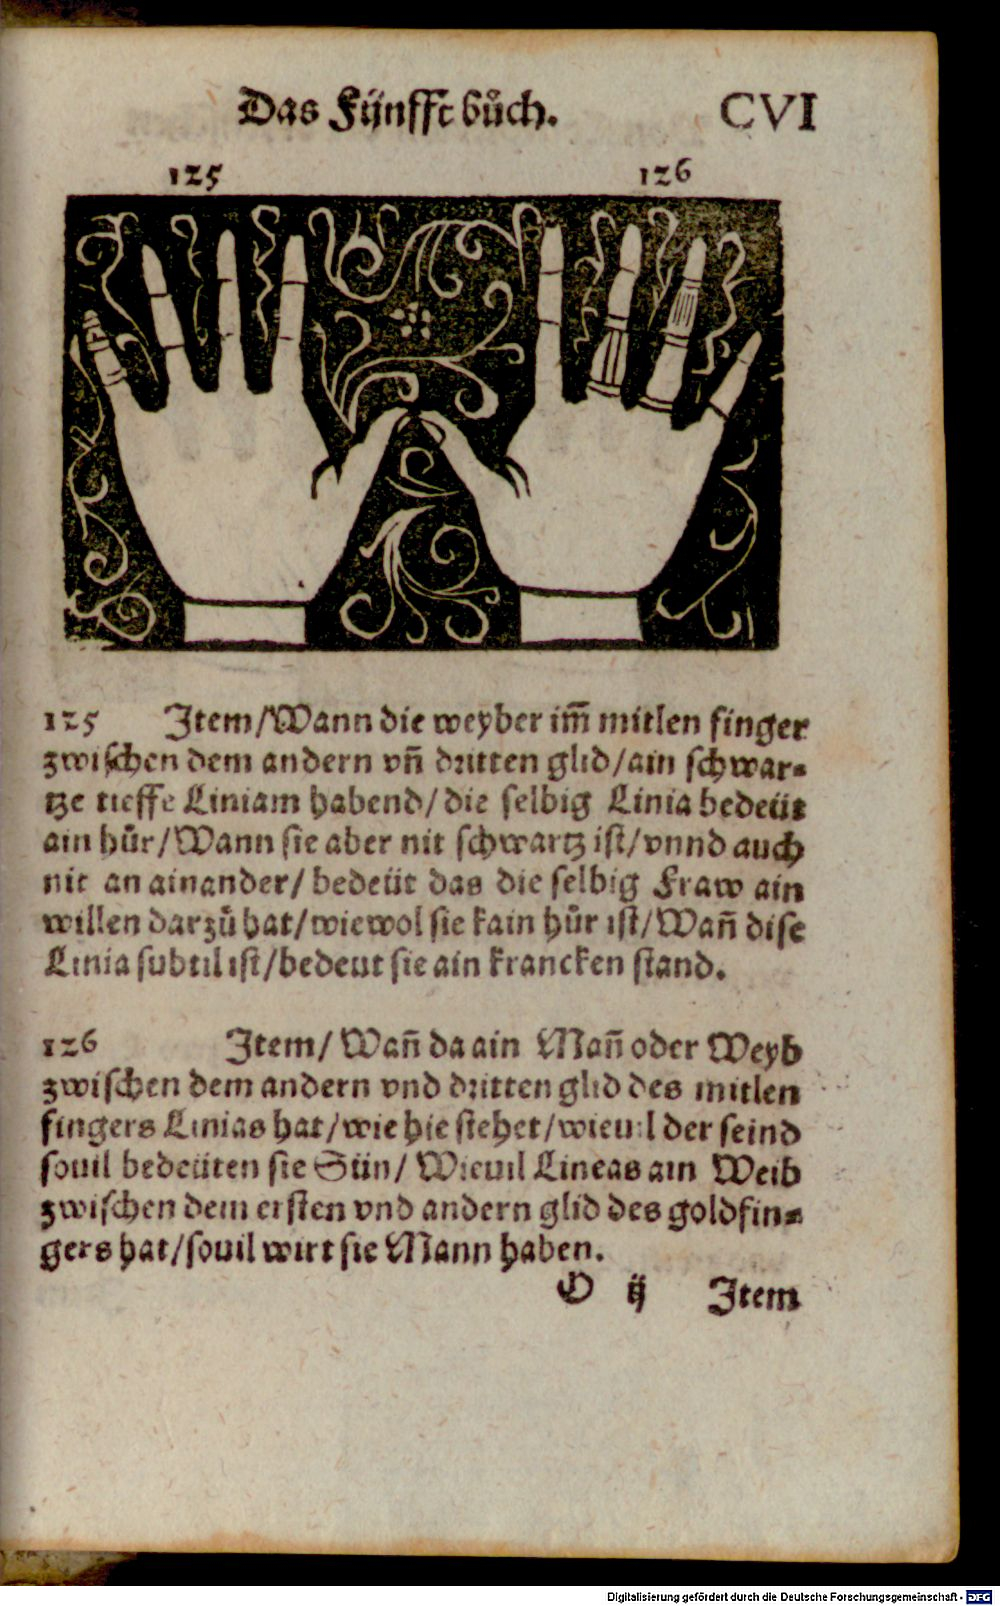 Das Fijnfft bůch. CVI
125 126
125 Item/Wann die weyber im̃ mitlen finger
zwischen dem andern vñ dritten glid/ain schwar⸗
tze tieffe Liniam habend/die selbig Linia bedeüt
ain hůr/Wann sie aber nit schwartz ist/vnnd auch
nit an ainander/bedeüt das die selbig Fraw ain
willen darzů hat/wiewol sie kain hůr ist/Wañ dise
Linia subtil ist/bedeut sie ain krancken stand.
126 Item/Wañ da ain Mañ oder Weyb
zwischen dem andern vnd dritten glid des mitlen
fingers Linias hat/wie hie stehet/wieuil der seind
souil bedeüten sie Sün/Wieuil Lineas ain Weib
zwischen dem ersten vnd andern glid des goldfin⸗
gers hat/souil wirt sie Mann haben.
O ij Item
Digitalisierung gefördert durch die Deutsche Forschungsgemeinschaft - DFG